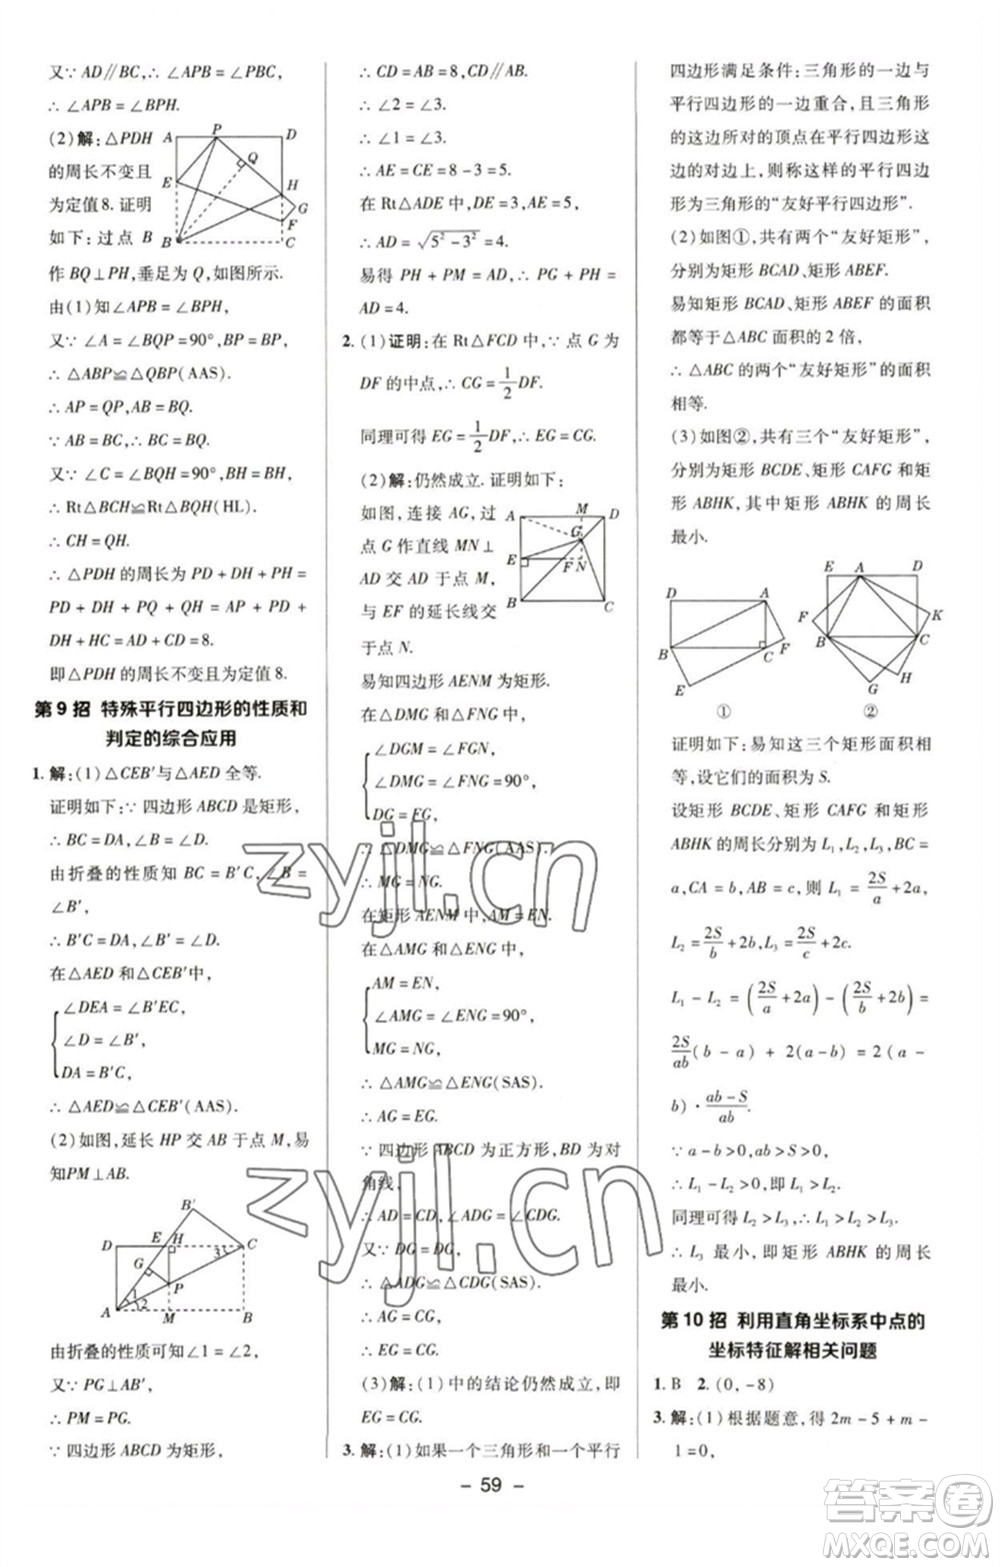 又∵ AD∥BC,∴ ∠APB = ∠PBC,
∴ ∠APB = ∠BPH.
(2)解:△PDH
的周长不变且
为定值 8. 证明
如下:过点 B
作 BQ⊥PH,垂足为 Q,如图所示.
由(1)知∠APB = ∠BPH,
又∵ ∠A = ∠BQP = 90°,BP = BP,
∴ △ABP≌△QBP(AAS).
∴ AP = QP,AB = BQ.
∵ AB = BC,∴ BC = BQ.
又∵ ∠C = ∠BQH = 90°,BH = BH,
∴ Rt△BCH≌Rt△BQH(HL).
∴ CH = QH.
∴ △PDH 的周长为 PD + DH + PH =
PD + DH + PQ + QH = AP + PD +
DH + HC = AD + CD = 8.
即△PDH 的周长不变且为定值 8.
A P D
E Q H G F
B C
第 9 招 特殊平行四边形的性质和
判定的综合应用
1. 解:(1)△CEB′与△AED 全等.
证明如下:∵ 四边形 ABCD 是矩形,
∴ BC = DA,∠B = ∠D.
由折叠的性质知 BC = B′C,∠B =
∠B′,
∴ B′C = DA,∠B′ = ∠D.
在△AED 和△CEB′中,
∠DEA = ∠B′EC,
∠D = ∠B′,
DA = B′C,
∴ △AED≌△CEB′(AAS).
(2)如图,延长 HP 交 AB 于点 M,易
知PM⊥AB.
B′
D E H 3 C
G P
A 1 2 M B
由折叠的性质可知∠1 = ∠2.
又∵ PG⊥AB′,
∴ PM = PG.
∵ 四边形 ABCD 为矩形,
∴ CD = AB = 8,CD∥AB.
∴ ∠2 = ∠3.
∴ ∠1 = ∠3.
∴ AE = EC = 8 - 3 = 5.
在 Rt△ADE 中,DE = 3,AE = 5,
∴ AD = √(5² - 3²) = 4.
易得 PH + PM = AD,∴ PG + PH =
AD = 4.
2. (1)证明:在 Rt△FCD 中,∵ 点 G 为
DF 的中点,∴ CG = 1/2 DF.
同理可得 EG = 1/2 DF,∴ EG = CG.
(2)解:仍然成立. 证明如下:
如图,连接 AG,过
点 G 作直线 MN⊥
AD 交 AD 于点 M,
与 EF 的延长线交
于点 N.
A M D
G
E F N
B C
易知四边形 AENM 为矩形.
在△DMG 和△FNG 中,
∠DGM = ∠FGN,
∠DMG = ∠FNG = 90°,
DG = FG,
∴ △DMG≌△FNG(AAS).
∴ MG = NG.
在矩形 AENM 中,AM = EN.
在△AMG 和△ENG 中,
AM = EN,
∠AMG = ∠ENG = 90°,
MG = NG,
∴ △AMG≌△ENG(SAS).
∴ AG = EG.
∵ 四边形 ABCD 为正方形,BD 为对
角线,
∴ AD = CD,∠ADG = ∠CDG.
又∵ DG = DG,
∴ △ADG≌△CDG(SAS).
∴ AG = CG.
∴ EG = CG.
(3)解:(1)中的结论仍然成立,即
EG = CG.
3. 解:(1)如果一个三角形和一个平行
四边形满足条件:三角形的一边与
平行四边形的一边重合,且三角形
的这边所对的顶点在平行四边形这
边的对边上,则称这样的平行四边
形为三角形的“友好平行四边形”.
(2)如图①,共有两个“友好矩形”,
分别为矩形 BCAD、矩形 ABEF.
易知矩形 BCAD、矩形 ABEF 的面积
都等于△ABC 面积的 2 倍,
∴ △ABC 的两个“友好矩形”的面积
相等.
(3)如图②,共有三个“友好矩形”,
分别为矩形 BCDE、矩形 CAFG 和矩
形 ABHK,其中矩形 ABHK 的周长
最小.
D A
B C F
E
①
E A D
F K
B C
G H
②
证明如下:易知这三个矩形面积相
等,设它们的面积为 S.
设矩形 BCDE、矩形 CAFG 和矩形
ABHK 的周长分别为 L₁,L₂,L₃,BC =
a,CA = b,AB = c,则 L₁ = 2S/a + 2a,
L₂ = 2S/b + 2b,L₃ = 2S/c + 2c.
L₁ - L₂ = (2S/a + 2a) - (2S/b + 2b) =
2S/ab (b - a) + 2(a - b) = 2(a -
b)· (ab - S)/ab.
∵ a - b > 0,ab > S > 0,
∴ L₁ - L₂ > 0,即 L₁ > L₂.
同理可得 L₂ > L₃,∴ L₁ > L₂ > L₃.
∴ L₃ 最小,即矩形 ABHK 的周长
最小.
第 10 招 利用直角坐标系中点的
坐标特征解相关问题
1. B 2. (0, -8)
3. 解:(1)根据题意,得 2m - 5 + m -
1 = 0,
- 59 -
zyjl.cn
zyjl.cn
答案圈
MXQE.COM